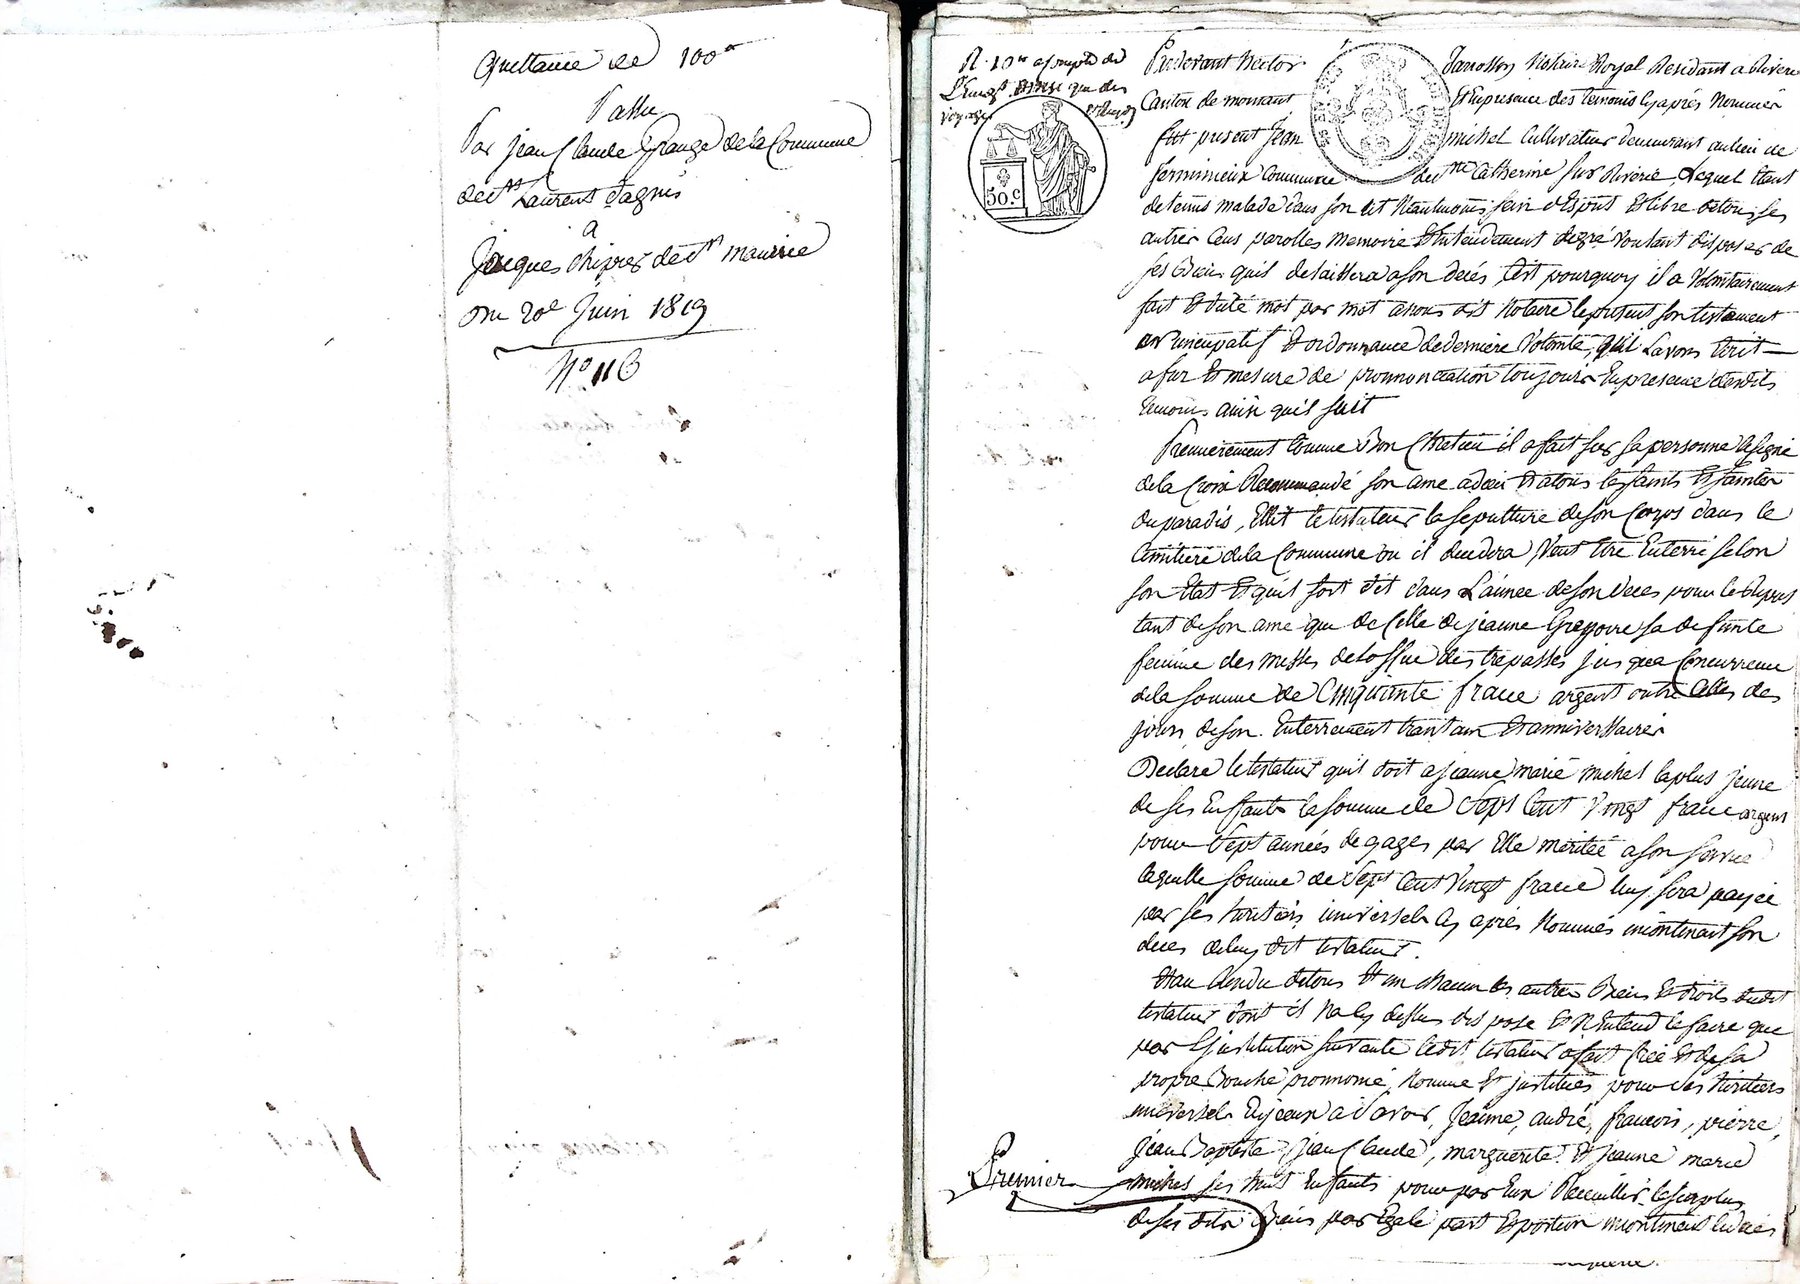 Quittance de 100 fr
Passu
Par jean Claude Grange de la Commune
de St Laurent Dagnis
a
Jacques chipier de St maurice
Du 20e Juin 1819
No 116
R. 10
voyage
50.c
Pardevant hector Notaire Royal Residant a Riverie
Canton de mornant Et En presence des temoins cy aprés Nommés
fut present Jean michel Cultivateur demeurant au lieu de
Commune de Ste Catherine sur Riverie, Lequel Etant
detenus malade dans son lit Neanmoins sain d'Esprit Et libre de tous ses
autres sens parolles memoire Et Entendement de gré voulant disposer de
ses Biens quil delaissera a son decés, C'est pourquoy il a volontairement
fait Et dicté mot par mot a nous dit Notaire le present son testament
nuncupatif Et ordonnance de derniere volonté, quil Lavons Ecrit
a fur Et mesure de prononciation toujours En presence desdits
temoins ainsi quil suit
Premierement comme Bon Chretien il a fait sur sa personne le signe
de la Croix Recommandé son ame a dieu Et a tous les saints Et saintes
du paradis, Ellit le testateur la sepulture de son Corps dans le
Cimitiere de la Commune ou il decedera Veut Etre Enterré selon
son Etat Et quil soit dit dans L'année de son deces pour le Repos
tant de son ame que de Celle de jeanne Gregoire sa defunte
femme des messes de loffice des trepassés jusqua Concurrence
de la somme de Cinquante franc argent outre Celles des
jours de son Enterrement trantain Et anniversaires
Declare le testateur quil doit a jeanne marie michel la plus jeune
de ses Enfants la somme de Sept Cent Vingt franc argent
pour Sept années de gages par Elle meritée a son service
laquelle somme de Sept Cent Vingt franc luy sera payée
par ses heritiers universels cy aprés Nommés incontinant son
deces deluy dit testateur.
Et au Residu de tous Et un chacun les autres Biens Et droits dudit
testateur dont il Na cy dessus disposé Et N'Entend le faire que
par L'institution suivante ledit testateur a fait Créé Et de sa
propre Bouche prononcé, Nommé Et institués pour ses heritiers
universels Egaux a Savoir, Jeanne, andré, francois, pierre,
Jean Baptiste, Jean Claude, marguerite Et jeanne marie
michel ses huit Enfants pour par Eux Recueillir le surplus
de ses dits Biens par Egale part Et portion incontinent le decés
Premier